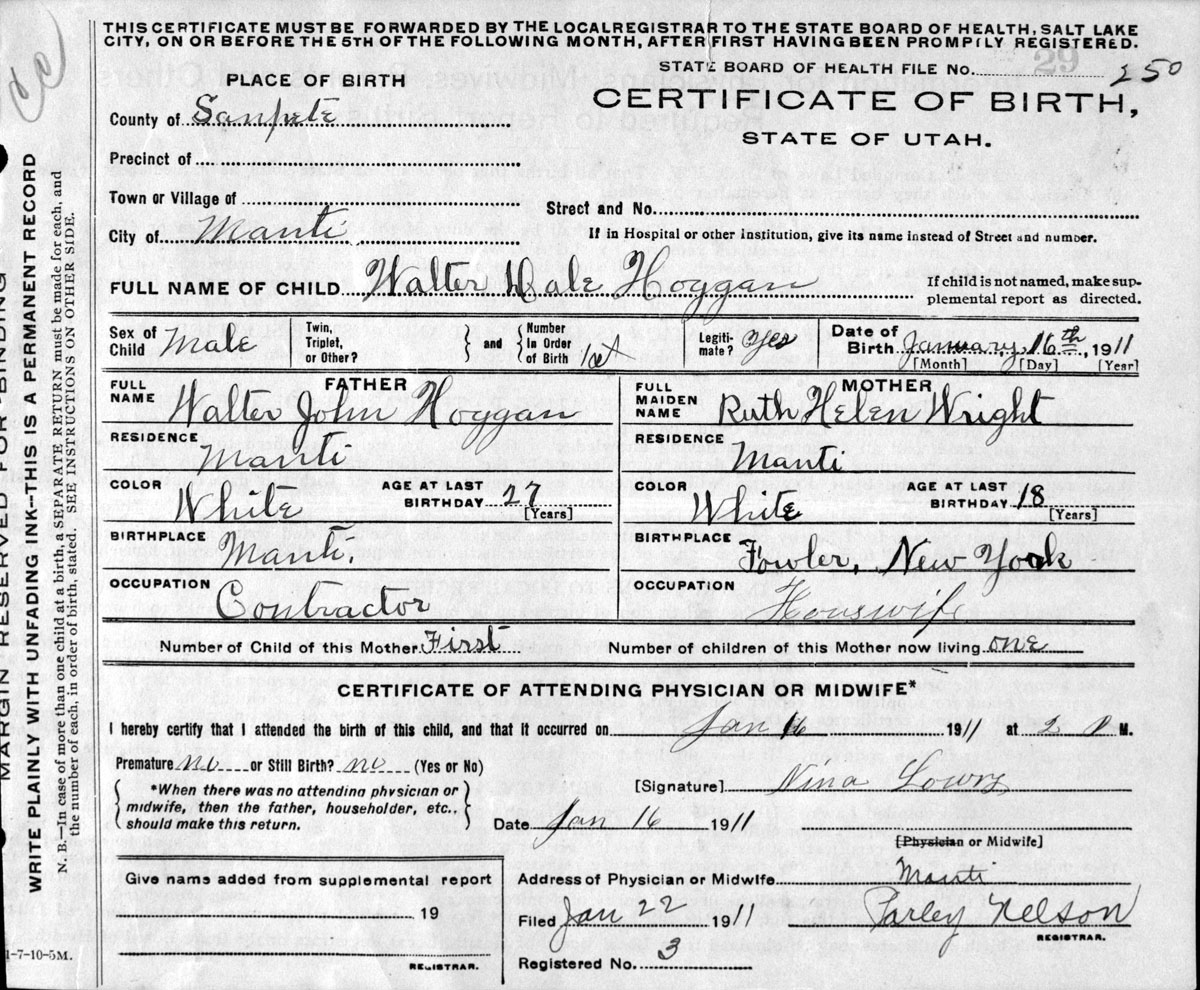 THIS CERTIFICATE MUST BE FORWARDED BY THE LOCAL REGISTRAR TO THE STATE BOARD OF HEALTH, SALT LAKE
CITY, ON OR BEFORE THE 5TH OF THE FOLLOWING MONTH, AFTER FIRST HAVING BEEN PROMPTLY REGISTERED.
STATE BOARD OF HEALTH FILE No. 250
29
PLACE OF BIRTH
CERTIFICATE OF BIRTH,
STATE OF UTAH.
County of Sanpete
Precinct of
Town or Village of
Street and No.
City of Manti
If in Hospital or other Institution, give its name instead of Street and number.
FULL NAME OF CHILD Walter Dale Hoggan
If child is not named, make sup-
plemental report as directed.
Sex of Child Male
Twin, Triplet, or Other?
and Number In Order of Birth 1st
Legiti-mate? Yes
Date of Birth January 16th, 1911
[Month] [Day] [Year]
FATHER
FULL NAME Walter John Hoggan
RESIDENCE Manti
COLOR White AGE AT LAST BIRTHDAY 27 [Years]
BIRTHPLACE Manti.
OCCUPATION Contractor
MOTHER
FULL MAIDEN NAME Ruth Helen Wright
RESIDENCE Manti
COLOR White AGE AT LAST BIRTHDAY 18 [Years]
BIRTHPLACE Fowler, New York
OCCUPATION Houswife
Number of Child of this Mother First Number of children of this Mother now living one
CERTIFICATE OF ATTENDING PHYSICIAN OR MIDWIFE*
I hereby certify that I attended the birth of this child, and that it occurred on Jan 16 1911 at 2 P M.
Premature no or Still Birth? no (Yes or No)
*When there was no attending physician or
midwife, then the father, householder, etc.,
should make this return.
[Signature] Nina Lowry
Date Jan 16 1911
[Physician or Midwife]
Give name added from supplemental report
19
REGISTRAR.
Address of Physician or Midwife Manti
Filed Jan 22 1911 Parley Nelson
REGISTRAR.
Registered No. 3
1-7-10-5M.
MARGIN RESERVED FOR BINDING
WRITE PLAINLY WITH UNFADING INK--THIS IS A PERMANENT RECORD
N. B.—In case of more than one child at a birth, a SEPARATE RETURN must be made for each, and
the number of each, in order of birth, stated. SEE INSTRUCTIONS ON OTHER SIDE.